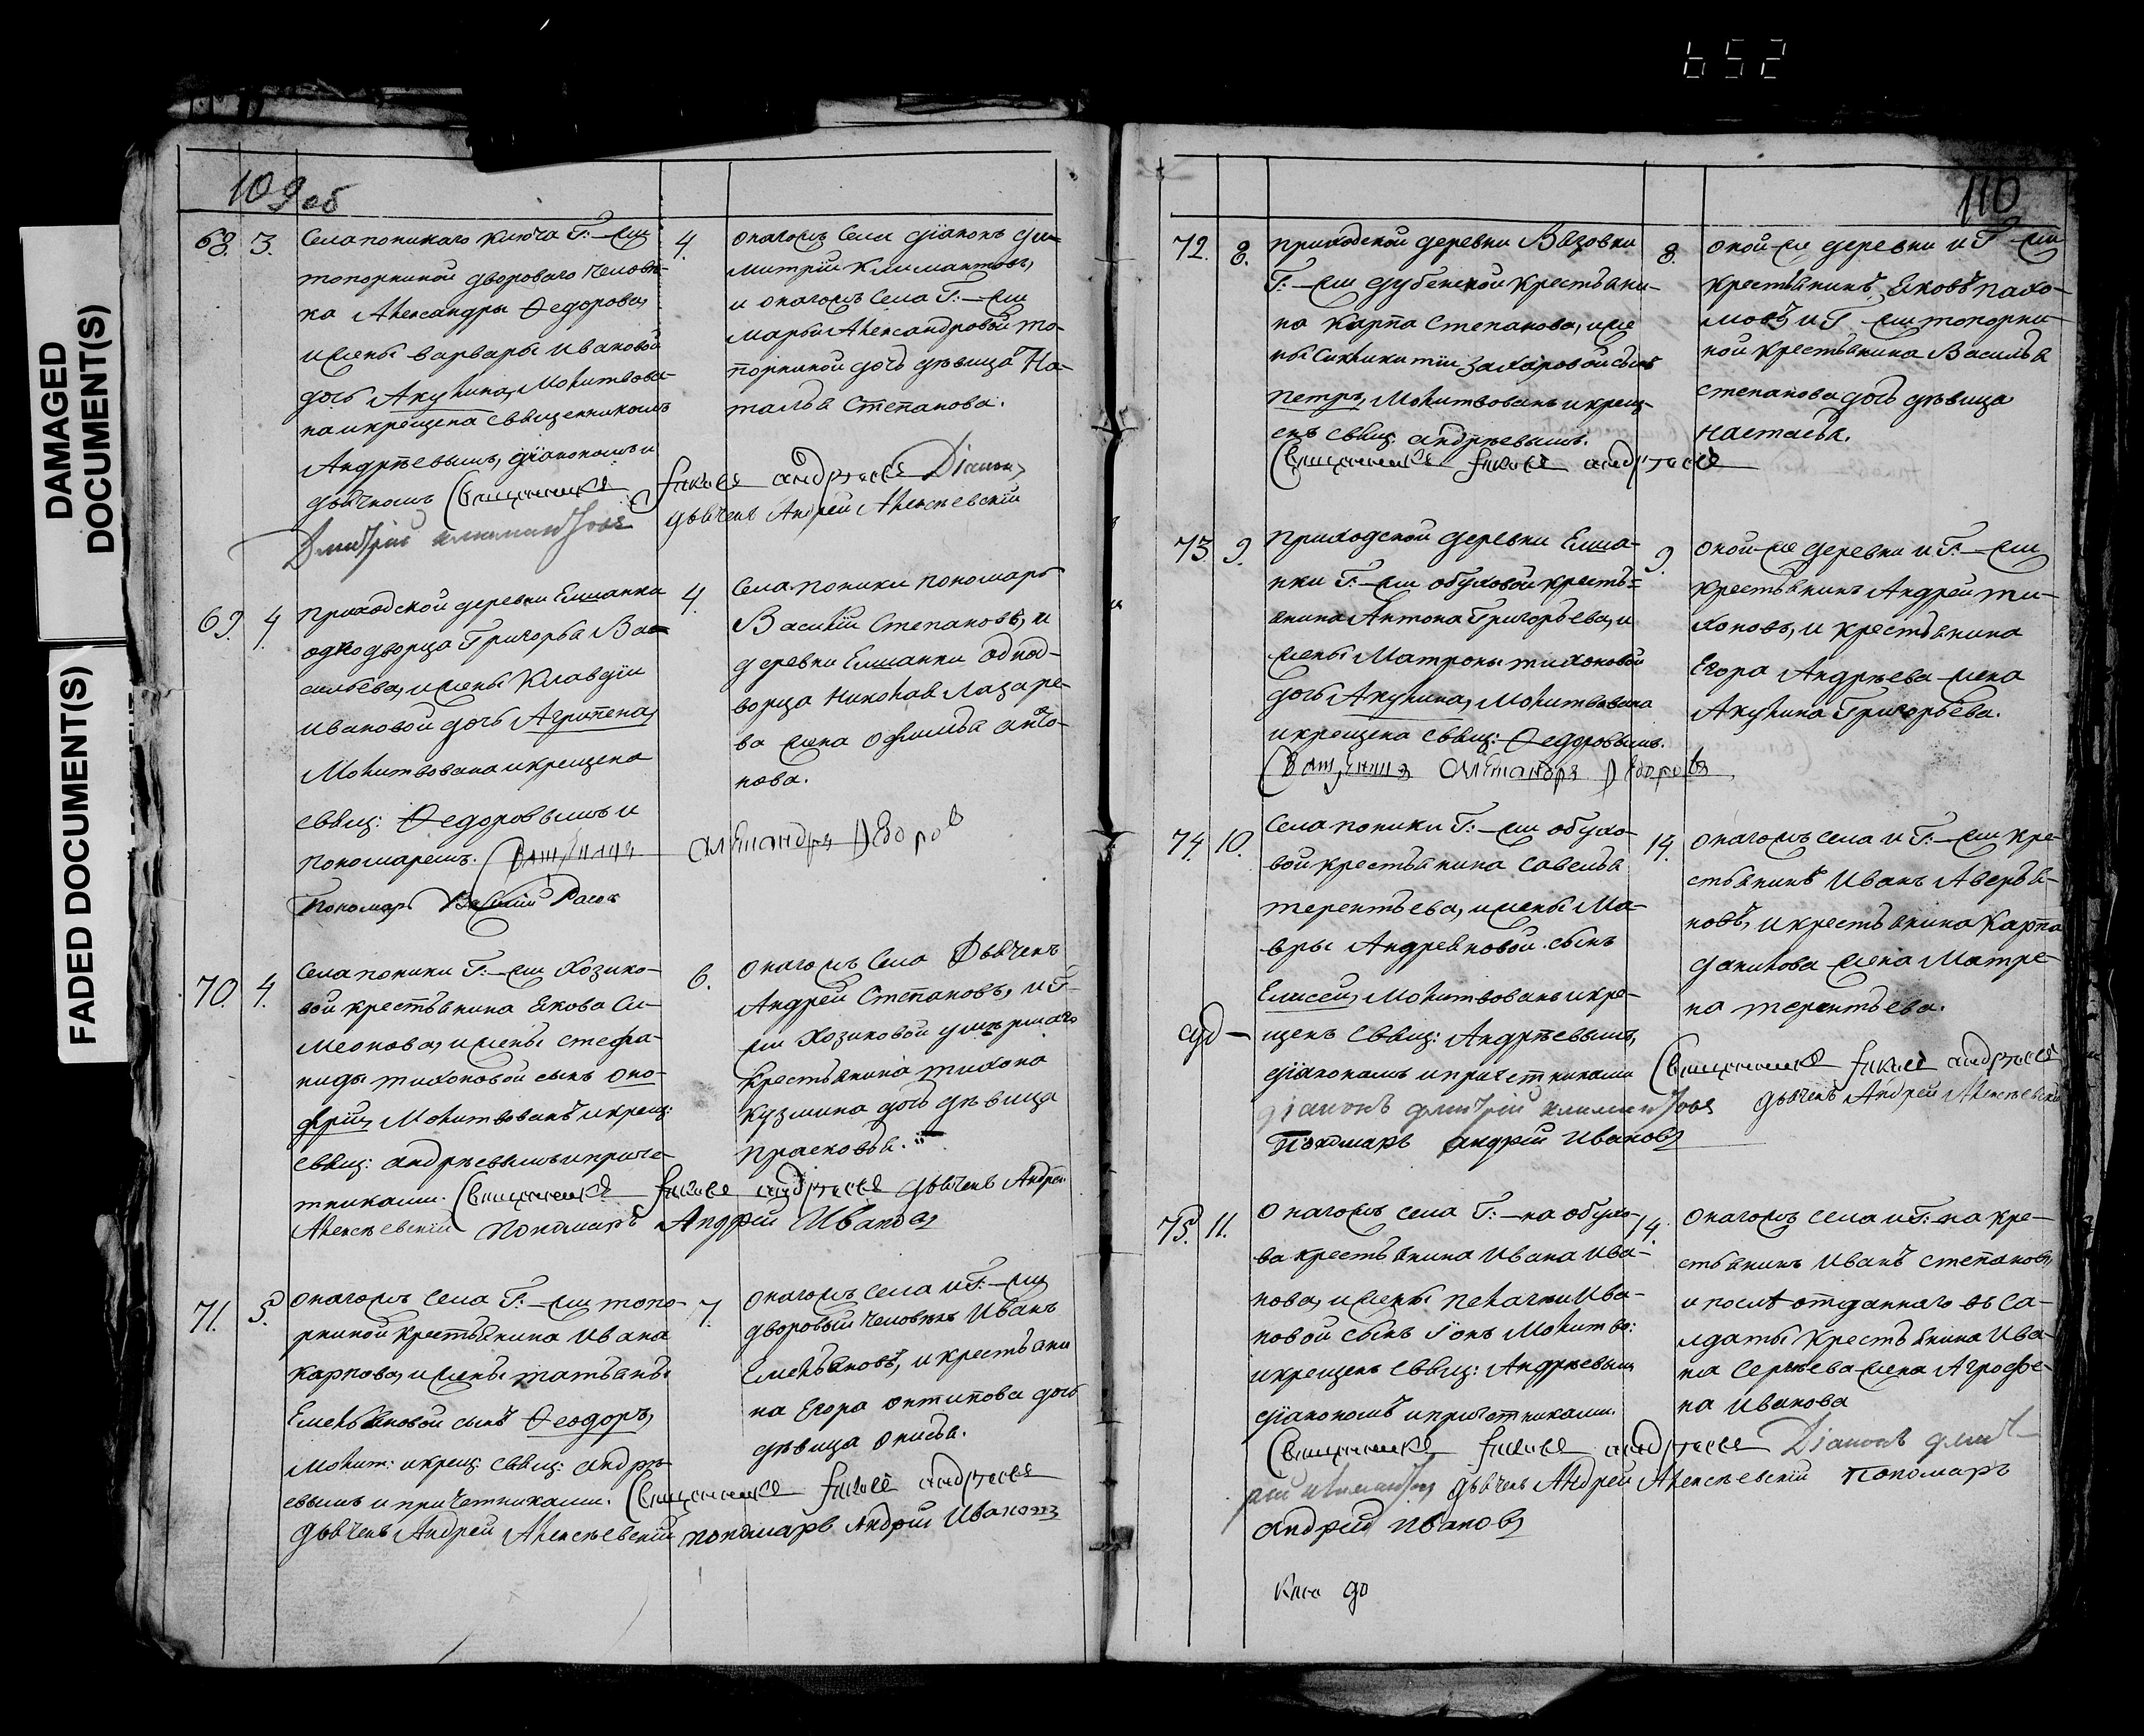 652
DAMAGED
DOCUMENT(S)
FADED DOCUMENT(S)
109 об
68. 3. Села поникаго ключа Г:—жи
топорниной двороваго челове-
ка Александры Федорова,
и жены варвары ивановой
дочь Акулина, Молитвова-
на и крещена священникомъ
Андрѣевымъ, діакономъ и
дьячкомъ Священникъ Іаковъ андреевъ Діаконъ
Дмитрій климантовъ дьячекъ Андрей Алексѣевскій
4. Онагожъ Села діаконъ Ди-
митрій Климантовъ,
и онагожъ села Г:—жи
Марьи Александровой то-
порниной дочь дѣвица На-
талья Степанова.
69. 4. Приходской деревни Елшанки
однодворца Григорья Ва-
сильева, и жены Клавдіи
ивановой дочь Агрипена,
Молитвована и крещена
свящ: Федоровымъ и
пономаремъ.
Пономарь
4. Села поники пономарь
Василій Степановъ, и
деревни Елшанки однод-
ворца Николая Лазаре-
ва жена Офимья анто-
нова.
70. 4. Села поники Г:—жи Хозико-
вой крестьянина Якова Си-
меонова, и жены стефа-
ниды тихоновой сынъ оно-
фрій, Молитвованъ и крещ:
свящ: андрѣевымъ и приче-
тниками. Священникъ Іаковъ андреевъ дьячекъ Андрей
Алексѣевскій пономарь Андрѣй Ивановъ
6. Онагожъ Села Дьячекъ
Андрей Степановъ, и Г-
жи Хозиковой умѣршаго
крестьянина тихона
кузмина дочь дѣвица
прасковья.
71. 5. Онагожъ Села Г:—жи топо-
рниной крестьянина Ивана
карпова, и жены татьяны
Емельяновой сынъ Феодоръ,
Молит: и крещ: свящ: андрѣ-
евымъ и причетниками. Священникъ Іаковъ андреевъ
дьячекъ Андрей Алексѣевскій пономарь Андрѣй Ивановъ
7. Онагожъ Села и Г:—жи
дворовый человѣкъ Иванъ
Емельяновъ, и крестьяни
на Егора антипова дочь
дѣвица анисья.
110
72. 8. Приходской деревни Вязовки
Г:—жи дубенской крестьяни-
на Карпа Степанова, и же
ны Синклитии Захаровой сынъ
петръ, Молитвованъ и крещ-
енъ свящ: андрѣевымъ.
Священникъ Іаковъ андреевъ
8. Оной же деревни и Г—жи
крестьянинъ, Яковъ пахо-
мовъ, и Г—жи топорни-
ной крестьянина Василья
степанова дочь дѣвица
Настасья.
73. 9. Приходской деревни Елша-
нки Г:—жи обуховой кресть=
янина Антона Григорьева, и
жены Матроны тихоновой
дочь Акулина, Молитвована
и крещена свящ: Федоровымъ.
9. Оной же деревни и Г:—жи
крестьянинъ Андрей ти-
хоновъ, и крестьянина
Егора Андрѣева жена
Акулина Григорьева.
74. 10. Села поники Г:—жи обухо-
вой крестьянина Савелья
терентьева, и жены Ма-
вры Андреяновой сынъ
Елисей, Молитвованъ и кре-
щенъ свящ: Андрѣевымъ,
діакономъ и причетниками Священникъ Іаковъ андреевъ
діаконъ дмитрій климантовъ дьячекъ Андрей Алексѣевскій
Пономарь андрѣй Ивановъ
14. Онагожъ села и Г:—жи кре-
стьянинъ Иванъ Аверья-
новъ, и крестьянина Карпа
данилова жена Матре-
на терентьева.
75. 11. Онагожъ села Г:—на обухо-
ва крестьянина Ивана Ива-
нова, и жены пелагеи Ива-
новой сынъ Іонъ Молитво:
и крещенъ свящ: Андрѣевымъ
діакономъ и причетниками.
Священникъ Іаковъ андреевъ Діаконъ дмит-
рій климантовъ дьячекъ Андрей Алексѣевскій Пономарь
Андрей Ивановъ
14. Онагожъ села и Г:—на кре-
стьянинъ Иванъ степановъ,
и послѣ отданнаго въ са-
лдаты крестьянина Ива-
на Сергѣева жена Агрофе-
на Иванова